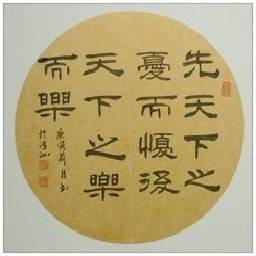 先天下之
憂而懮後
天下之樂
而樂
庚寅 月